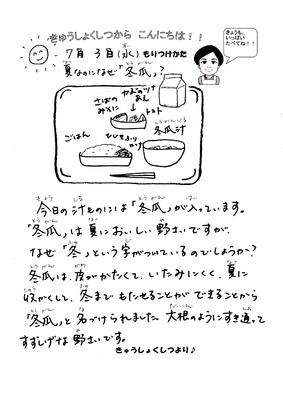 きゅうしょくしつから こんにちは！！
きょうも、
いっぱい
たべてね！！
7月 3日(水) もりつけかた
夏なのになぜ「冬瓜」？
さばの
みそに
やおやのツナ
あん
トマト
冬瓜汁
ごはん
ひじきふりかけ
今日の汁ものには「冬瓜」が入っています。
「冬瓜」は夏においしい野さいですが、
なぜ「冬」という字がついているのでしょうか？
冬瓜は、皮がかたくて、いたみにくく、夏に
収かくして、冬までもたせることができることから
「冬瓜」と名づけられました。大根のようにすき通って
すずしげな野さいです。
きゅうしょくしつより♪